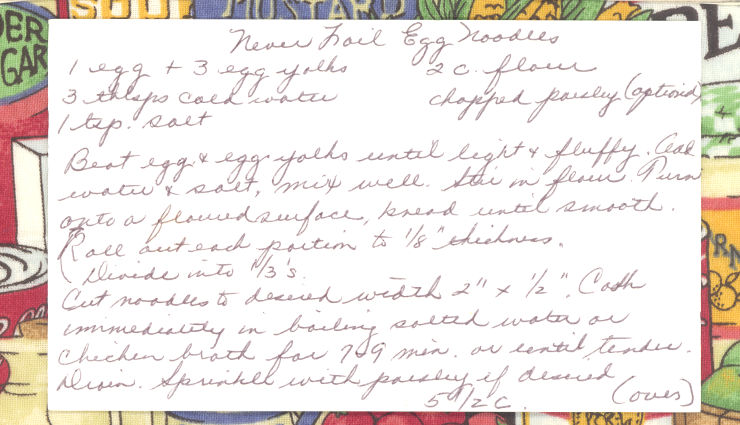 Never Fail Egg Noodles
1 egg + 3 egg yolks 2 c. flour
3 tblsps cold water chopped parsley (optional)
1 tsp. salt
Beat egg & egg yolks until light & fluffy. Add
water & salt, mix well. Stir in flour. Turn
onto a floured surface, knead until smooth.
Roll out each portion to 1/8" thickness.
(Divide into 1/3's.
Cut noodles to desired width 2" x 1/2". Cook
immediately in boiling salted water or
chicken broth for 7-9 min. or until tender.
Drain. Sprinkle with parsley if desired
5 1/2 c. (over)
SOUP
MUSTARD
GAR